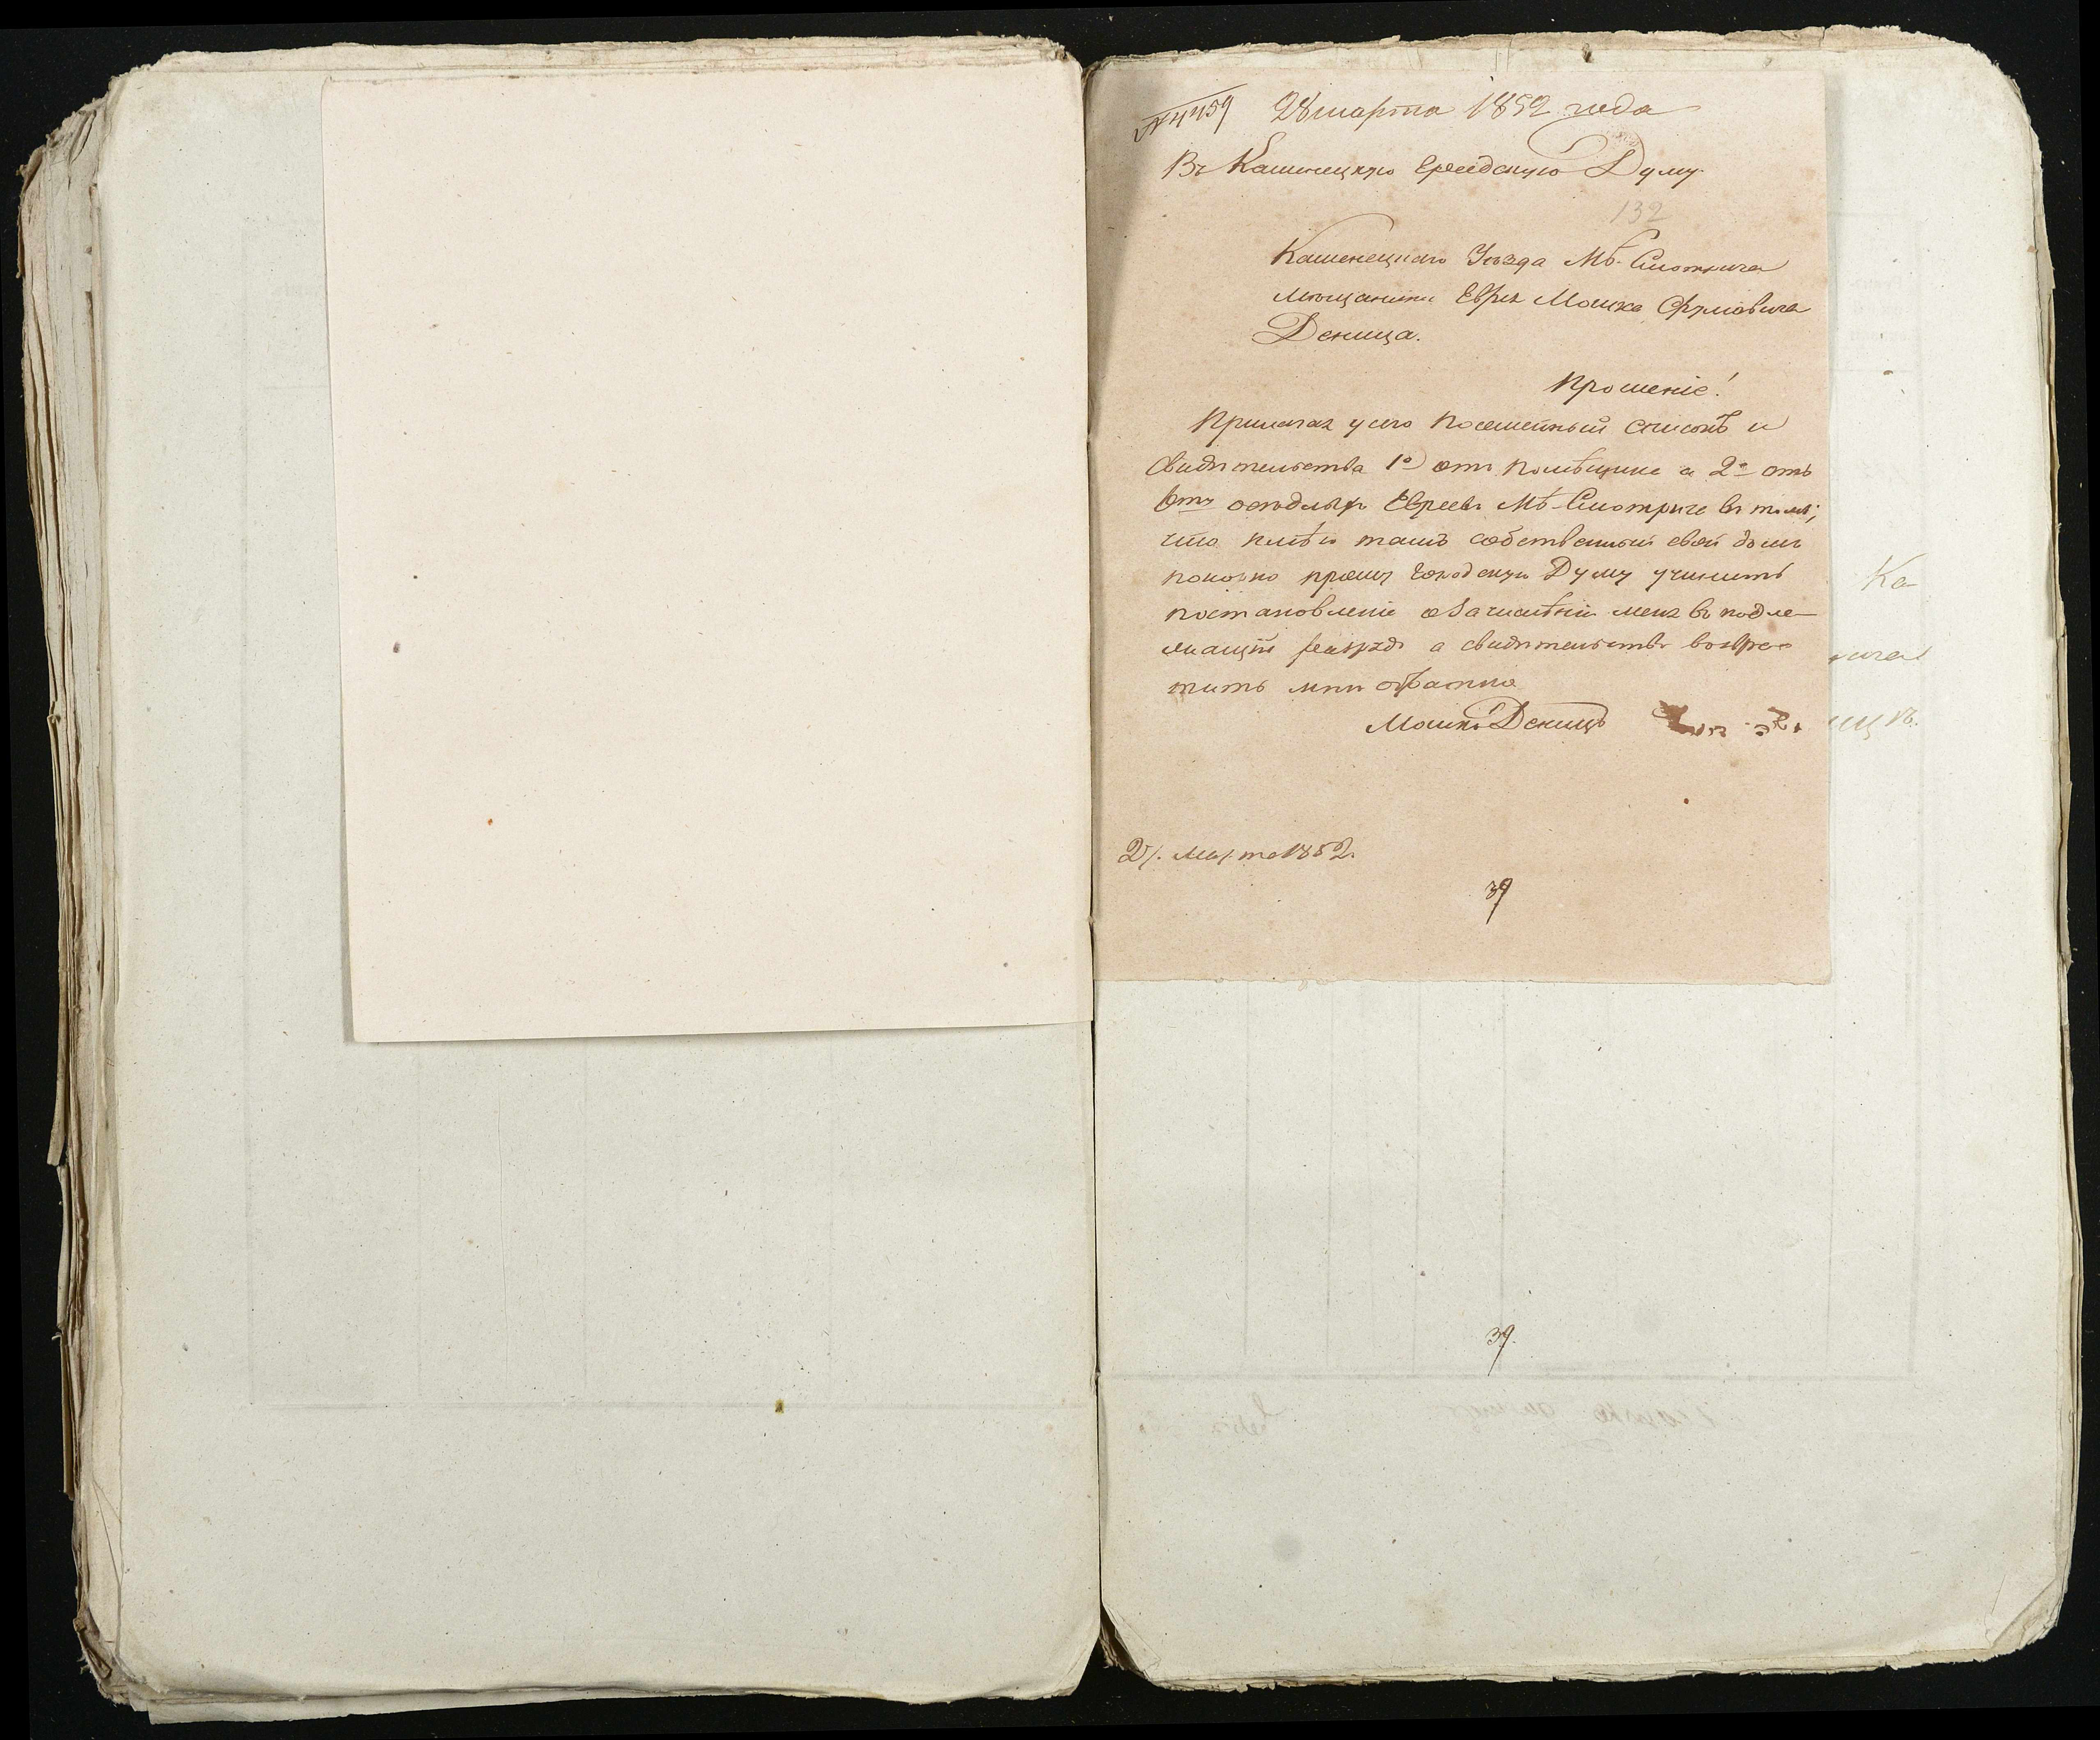 № 4459 28 марта 1852 года
Въ Каменецкую Городскую Думу
132
Каменецкаго Уѣзда Мѣ. Смотрича
мѣщанина Еврея Мошка Фрумовича
Деница.
Прошеніе!
Прилагая у сего посемейный списокъ и
свидѣтельства 1е) отъ помѣщика и 2е отъ
6ти осѣдлыхъ Евреевъ Мѣ. Смотрича въ томъ,
что имѣю тамъ собственный свой домъ
покорно прошу Городскую Думу учинить
постановленіе о зачисленіи меня въ подле-
жащій разрядъ а свидѣтельства возвра-
тить мнѣ обратно
Мошко Деницъ
27. Марта 1852.
39
39.
Ка
ича
ицъ.